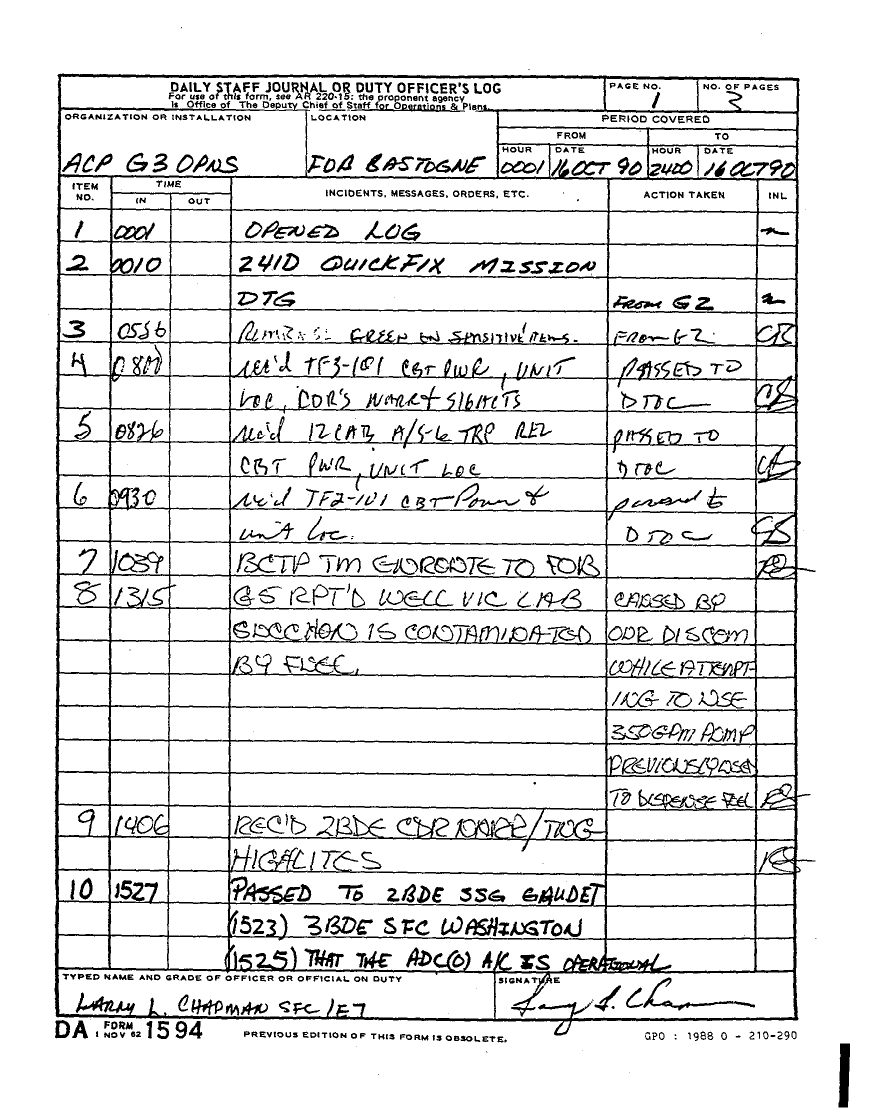 DAILY STAFF JOURNAL OR DUTY OFFICER'S LOG
For use of this form, see AR 220-15; the proponent agency
is Office of The Deputy Chief of Staff for Operations & Plans.
PAGE NO.
1
NO. OF PAGES
ORGANIZATION OR INSTALLATION
ACP G3 OPNS
LOCATION
FOB BASTOGNE
PERIOD COVERED
FROM
TO
HOUR DATE
0001 16 OCT 90
HOUR DATE
2400 16 OCT 90
ITEM NO.
TIME
IN
OUT
INCIDENTS, MESSAGES, ORDERS, ETC.
ACTION TAKEN
INL
1 0001 OPENED LOG
2 0010 241D QUICKFIX MISSION
DTG FROM G2
3 0556 GREEN ON SENSITIVE ITEMS. FROM G2 CB
4 0800 rec'd TF3-101 CBT PWR, UNIT PASSED TO
LOC, CDR'S NARR + SIGACTS DTOC CB
5 0826 rec'd 12CAB A/5-6 TRP REL PASSED TO
CBT PWR, UNIT LOC DTOC CB
6 0930 rec'd TF2-101 CBT Power & passed to
unit loc. DTOC CB
7 1039 BCTP TM ENROUTE TO FOB
8 1315 G5 RPT'D WELL VIC LIAB CAUSED BY
IS CONTAMINATED OUR DISCOM
BY FUEL. WHILE ATTEMPT-
ING TO USE
350GPM PUMP
PREVIOUSLY USED
TO DISPENSE FUEL
9 1406 REC'D 2BDE CDR NARR/TNG
HIGHLITES
10 1527 PASSED TO 2BDE SSG GAUDET
(1523) 3BDE SFC WASHINGTON
(1525) THAT THE ADC(O) A/C IS OPERATIONAL
TYPED NAME AND GRADE OF OFFICER OR OFFICIAL ON DUTY
LARRY L. CHAPMAN SFC/E7
SIGNATURE
Larry L. Chapman
DA FORM 1 NOV 62 1594
PREVIOUS EDITION OF THIS FORM IS OBSOLETE.
GPO : 1988 O - 210-290